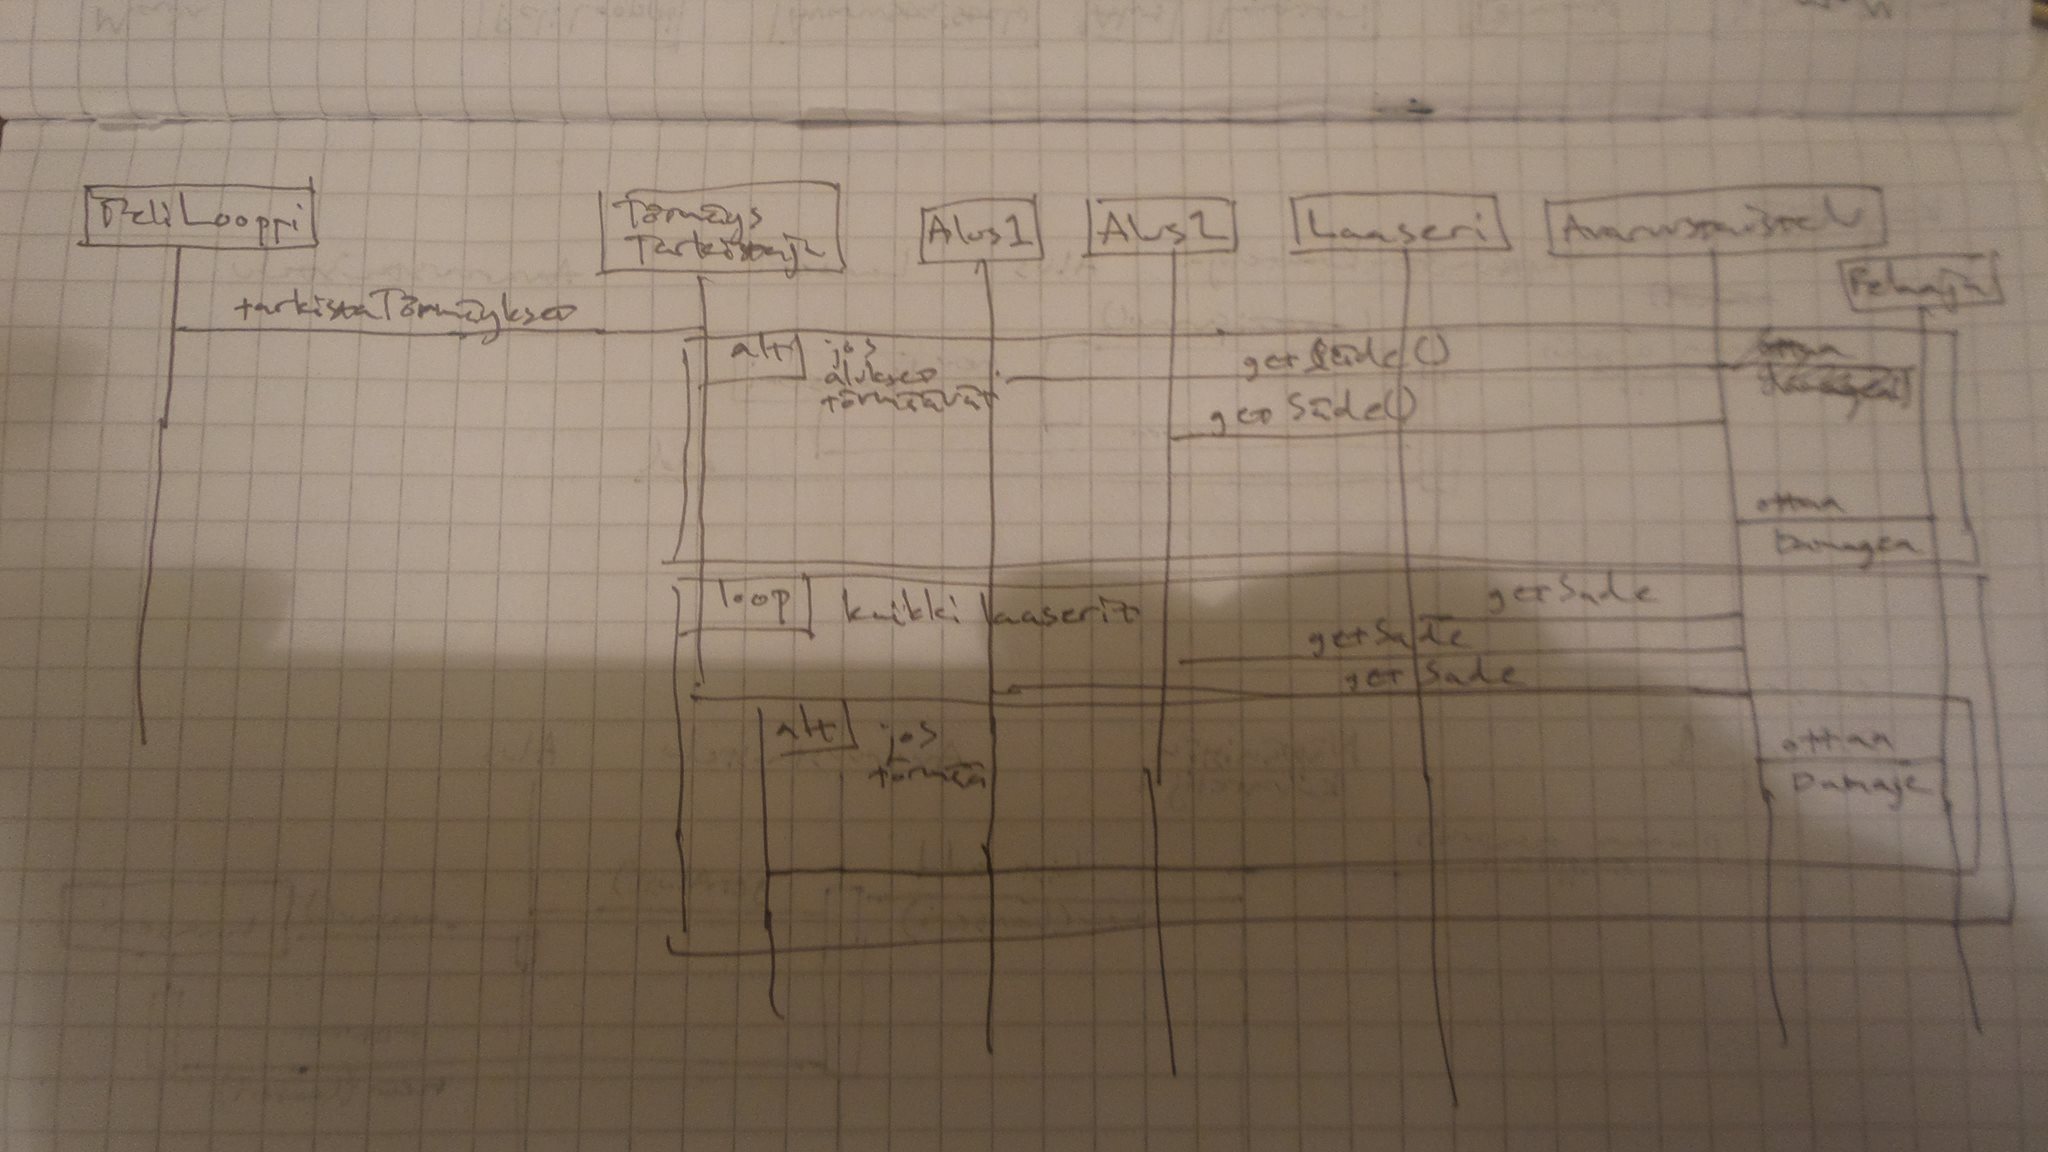 PeliLooppi
Törmäys
Tarkistaja
Alus1
Alus2
Laaseri
Avaruustaistelu
Pelaaja
tarkistaTörmäykset
alt
jos
alukset
törmäävät
getSäde()
getSäde()
ottaa
Damagea
loop
kaikki laaserit
getSade
getSade
getSade
alt
jos
törmää
ottaa
Damage